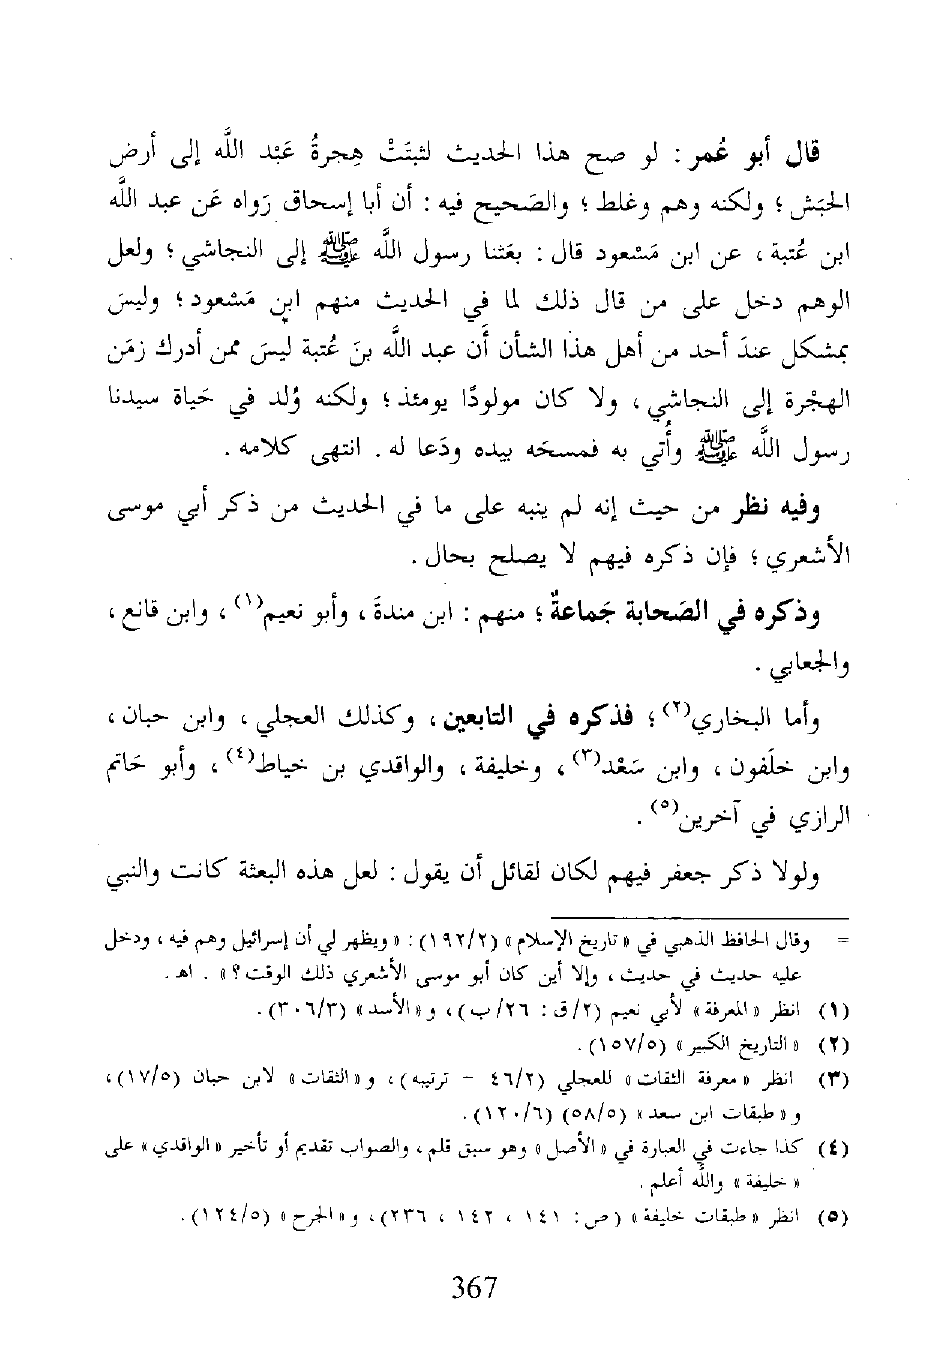 قال أبو عُمر : لو صح هذا الحديث لثبتَتْ هِجرةُ عَبْد اللَّه إلى أرض
الحبَش ؛ ولكنه وهم وغلط ؛ والصَحيح فيه : أن أبا إسحاق رَواه عَن عبد اللَّه
ابن عُتبة ، عن ابن مَسْعود قال : بعَثنا رسول اللَّه ﷺ إلى النجاشي ؛ ولعل
الوهم دخل على من قال ذلك لما في الحديث منهم ابن مَسْعود ؛ وليسَ
بمشكل عندَ أحد من أهل هذا الشأن أن عبد اللَّه بنَ عُتبة ليسَ ممن أدرك زمَن
الهجْرة إلى النجاشي ، ولا كان مولودًا يومئذ ؛ ولكنه وُلد في حَياة سيدنا
رسول اللَّه ﷺ وأُتي به فمسحَه بيده ودَعا له . انتهى كلامه .
وفيه نظر من حيث إنه لم ينبه على ما في الحديث من ذكر أبي موسى
الأشعري ؛ فإن ذكره فيهم لا يصلح بحال .
وذكره في الصَحابة جَماعةٌ ؛ منهم : ابن مندةَ ، وأبو نعيم(١) ، وابن قانع ،
والجعابي .
وأما البخاري(٢) ؛ فذكره في التابعين ، وكذلك العجلي ، وابن حبان ،
وابن خلَفون ، وابن سَعْد(٣) ، وخليفة ، والواقدي بن خياط(٤) ، وأبو حَاتم
الرازي في آخرين(٥) .
ولولا ذكر جعفر فيهم لكان لقائل أن يقول : لعل هذه البعثة كانت والنبي
= وقال الحافظ الذهبي في « تاريخ الإسلام » (١٩٢/٢) : « ويظهر لي أن إسرائيل وهم فيه ، ودخل
عليه حديث في حديث ، وإلا أين كان أبو موسى الأشعري ذلك الوقت ؟ » . اهـ .
(١) انظر « المعرفة » لأبي نعيم (٢/ق : ٢٦/ب) ، و « الأسد » (٣٠٦/٣) .
(٢) « التاريخ الكبير » (١٥٧/٥) .
(٣) انظر « معرفة الثقات » للعجلي (٤٦/٢ - ترتيبه) ، و « الثقات » لابن حبان (١٧/٥) ،
و « طبقات ابن سعد » (٥٨/٥) (١٢٠/٦) .
(٤) كذا جاءت في العبارة في « الأصل » وهو سبق قلم ، والصواب تقديم أو تأخير « الواقدي » على
« خليفة » واللَّه أعلم .
(٥) انظر « طبقات خليفة » (ص : ١٤١ ، ١٤٢ ، ٢٣٦) ، و « الجرح » (١٢٤/٥) .
367